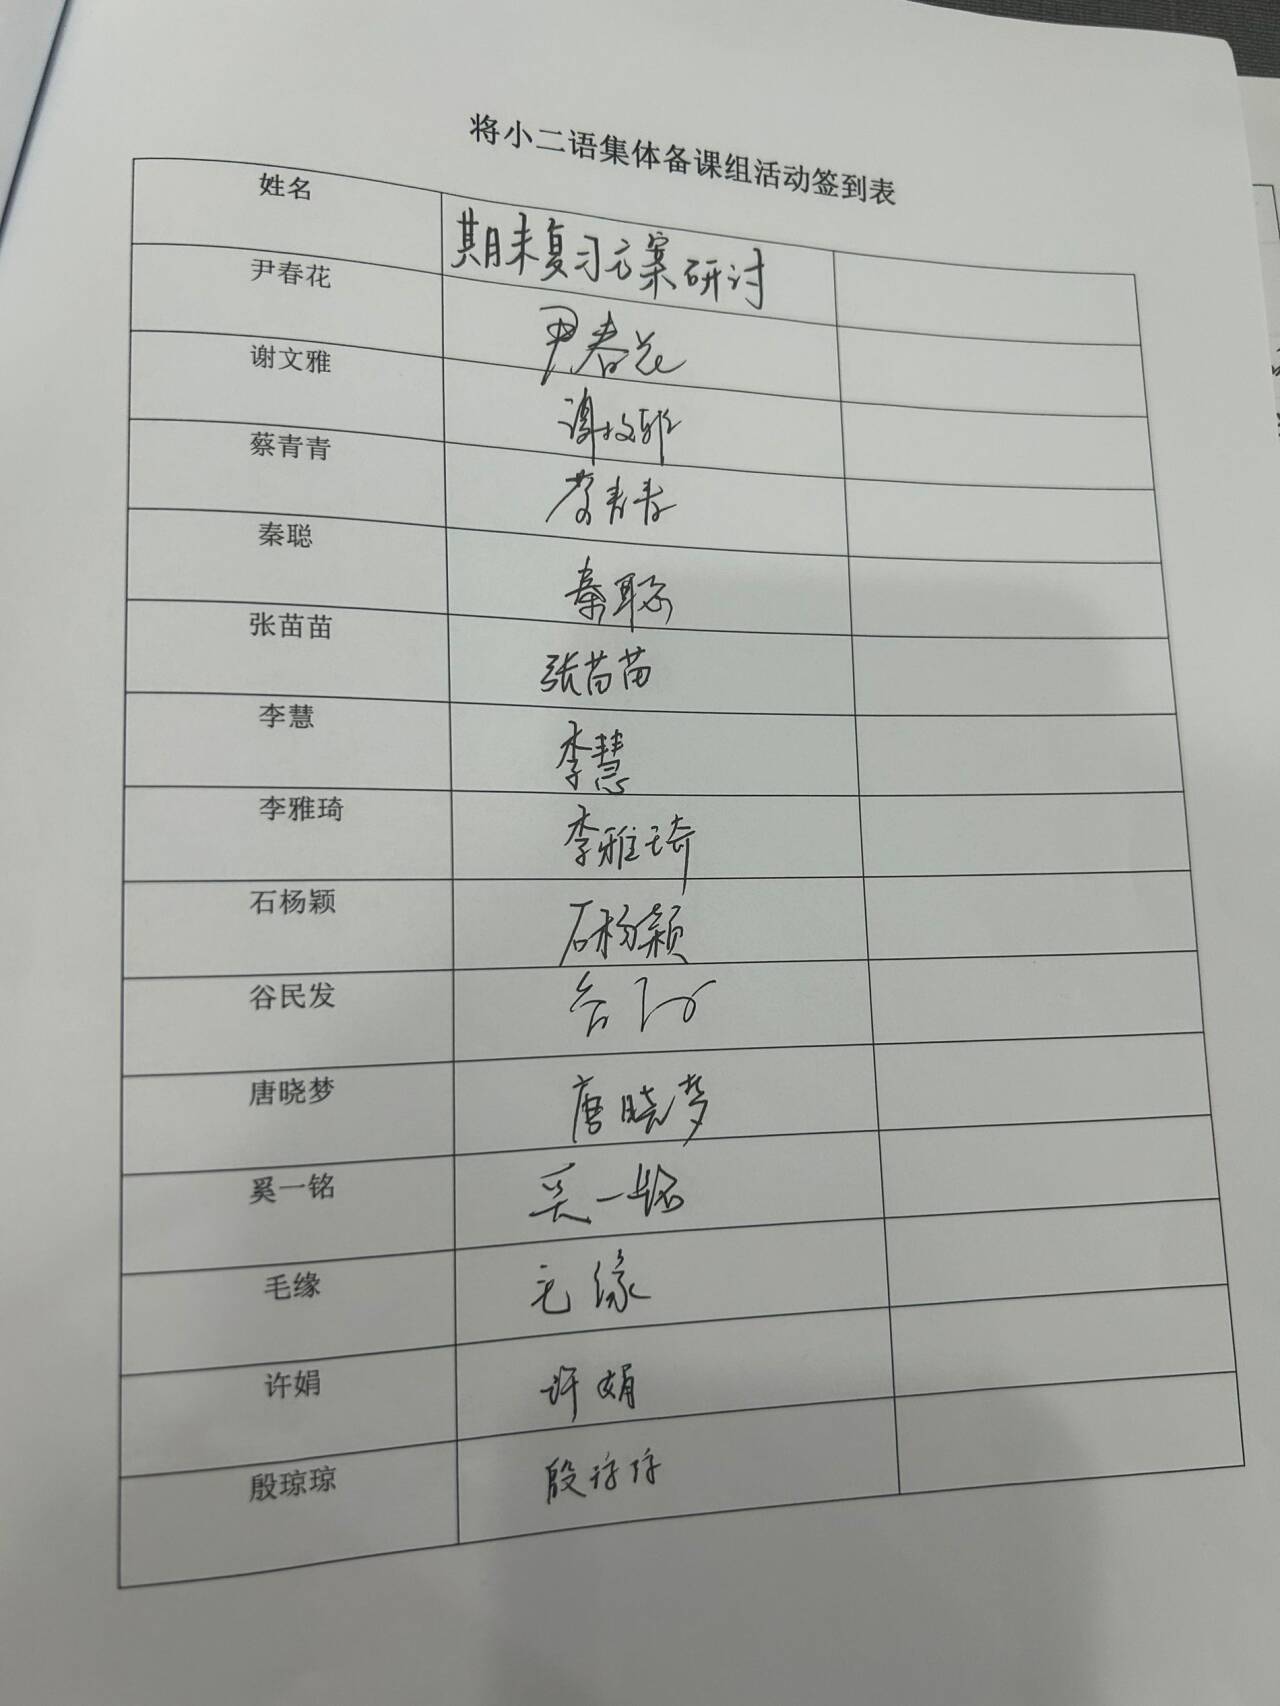 将小二语集体备课组活动签到表
姓名 期末复习方案研讨
尹春花 尹春花
谢文雅 谢文雅
蔡青青 蔡青青
秦聪 秦聪
张苗苗 张苗苗
李慧 李慧
李雅琦 李雅琦
石杨颖 石杨颖
谷民发 谷
唐晓梦 唐晓梦
奚一铭 奚一铭
毛缘 毛缘
许娟 许娟
殷琼琼 殷琼琼